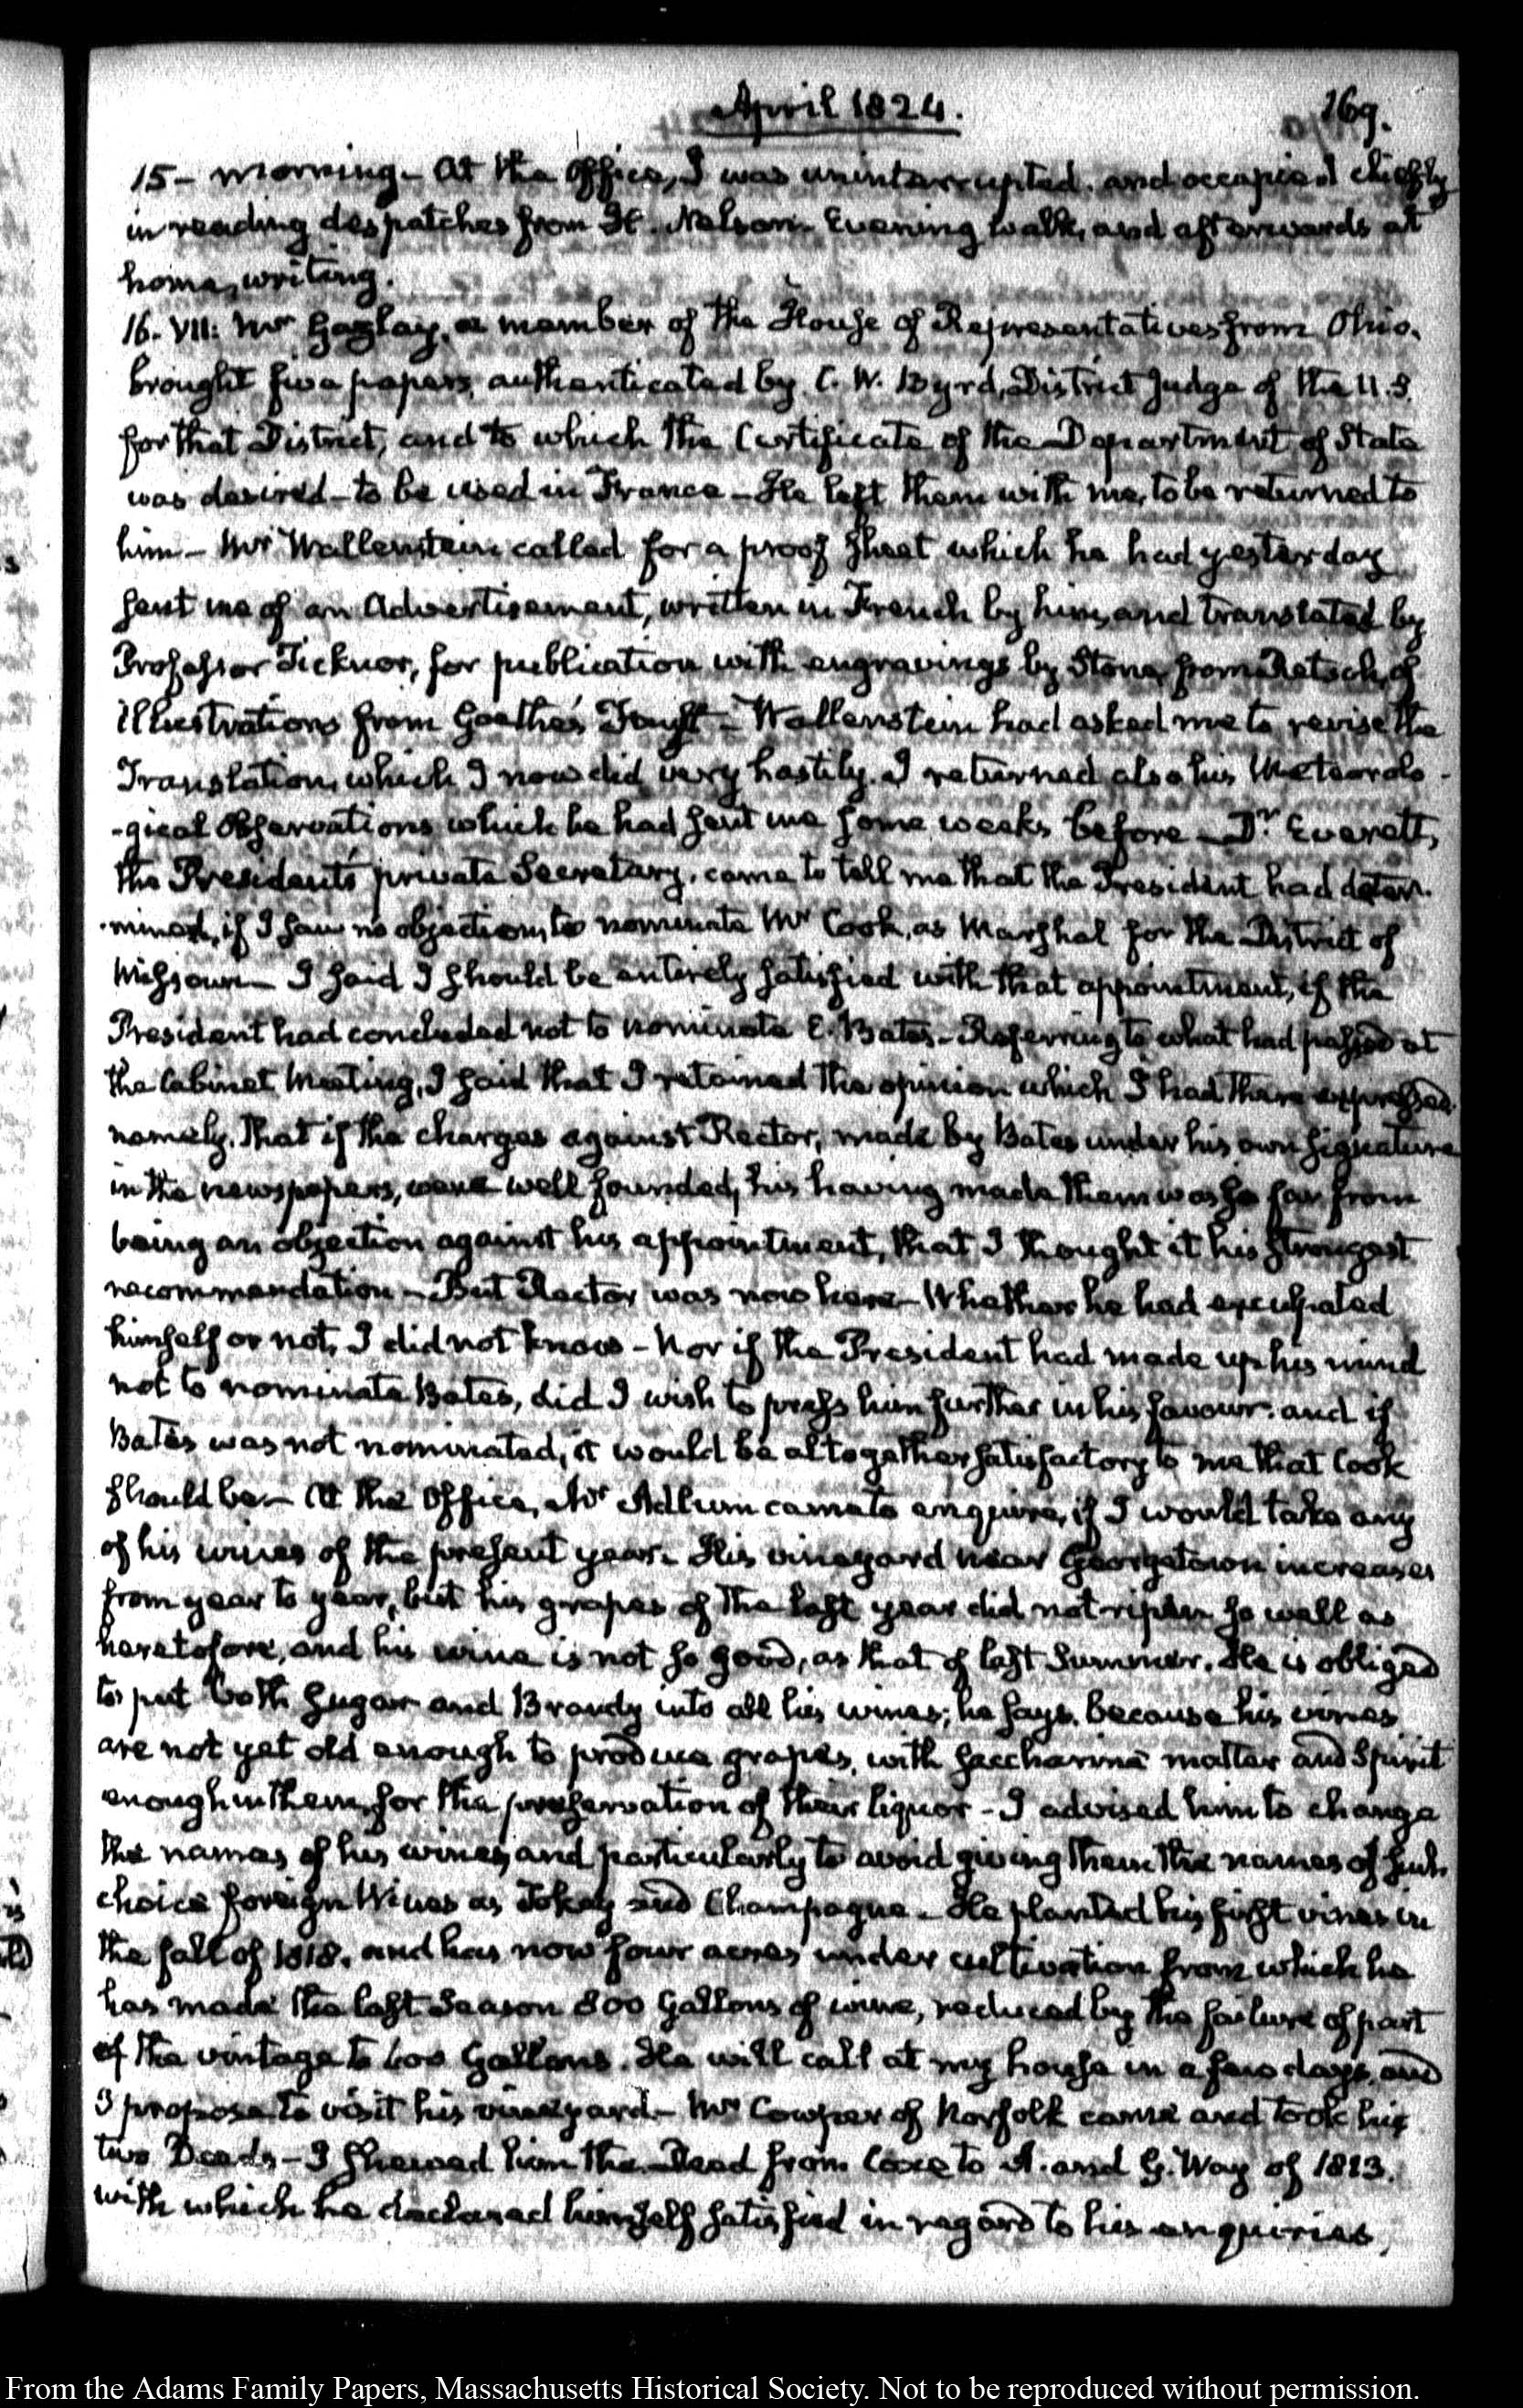 April 1824.
169.
15 – morning – At the Office, I was uninterrupted, and occupied chiefly
in reading despatches from H. Nelson – Evening walk, and afterwards at
home, writing.
16. VII: Mr Gazlay, a member of the House of Representatives from Ohio,
brought two papers, authenticated by C. W. Byrd, District Judge of the U.S.
for that District, and to which the Certificate of the Department of State
was desired – to be used in France – He left them with me, to be returned to
him – Mr Wallenstein called for a proof sheet which he had yesterday
sent me of an Advertisement, written in French by him, and translated by
Professor Ticknor, for publication with engravings by Stone, from Retsch, of
illustrations from Goethe's Faust – Wallenstein had asked me to revise the
Translation, which I now did very hastily. I returned also his Meteorolo-
-gical Observations which he had sent me some weeks before – Dr Everett,
the President's private Secretary, came to tell me that the President had deter-
-mined, if I saw no objection, to nominate Mr Cook, as Marshal for the District of
Missouri – I said I should be entirely satisfied with that appointment, if the
President had concluded not to nominate E. Bates – Referring to what had passed at
the Cabinet Meeting, I said that I retained the opinion which I had there expressed
namely. that if the charges against Rector, made by Bates under his own signature
in the newspapers, were well founded, his having made them was so far from
being an objection against his appointment, that I thought it his strongest
recommendation – But Rector was now here – Whether he had exculpated
himself or not, I did not know – Nor if the President had made up his mind
not to nominate Bates, did I wish to press him further in his favour. and if
Bates was not nominated, it would be altogether satisfactory to me that Cook
should be – At the Office, Mr Adlum came to enquire, if I would take any
of his wines of the present year. His vineyard near Georgetown increases
from year to year, but his grapes of the last year did not ripen so well as
heretofore, and his wine is not so good, as that of last Summer. He is obliged
to put both sugar and Brandy into all his wines; he says, because his vines
are not yet old enough to produce grapes, with saccharine matter and spirit
enough in them, for the preservation of their liquor – I advised him to change
the names of his wines, and particularly to avoid giving them the names of such
choice foreign Wines as Tokay and Champagne – He planted his first vines in
the fall of 1818. and has now four acres under cultivation from which he
has made the last Season 800 Gallons of wine, reduced by the failure of part
of the vintage to 600 Gallons. He will call at my house in a few days, and
I propose to visit his vineyard – Mr Cowper of Norfolk came and took his
two Deeds – I shewed him the Deed from Coxe to A. and G. Way of 1813.
with which he declared himself satisfied in regard to his enquiries,
From the Adams Family Papers, Massachusetts Historical Society. Not to be reproduced without permission.